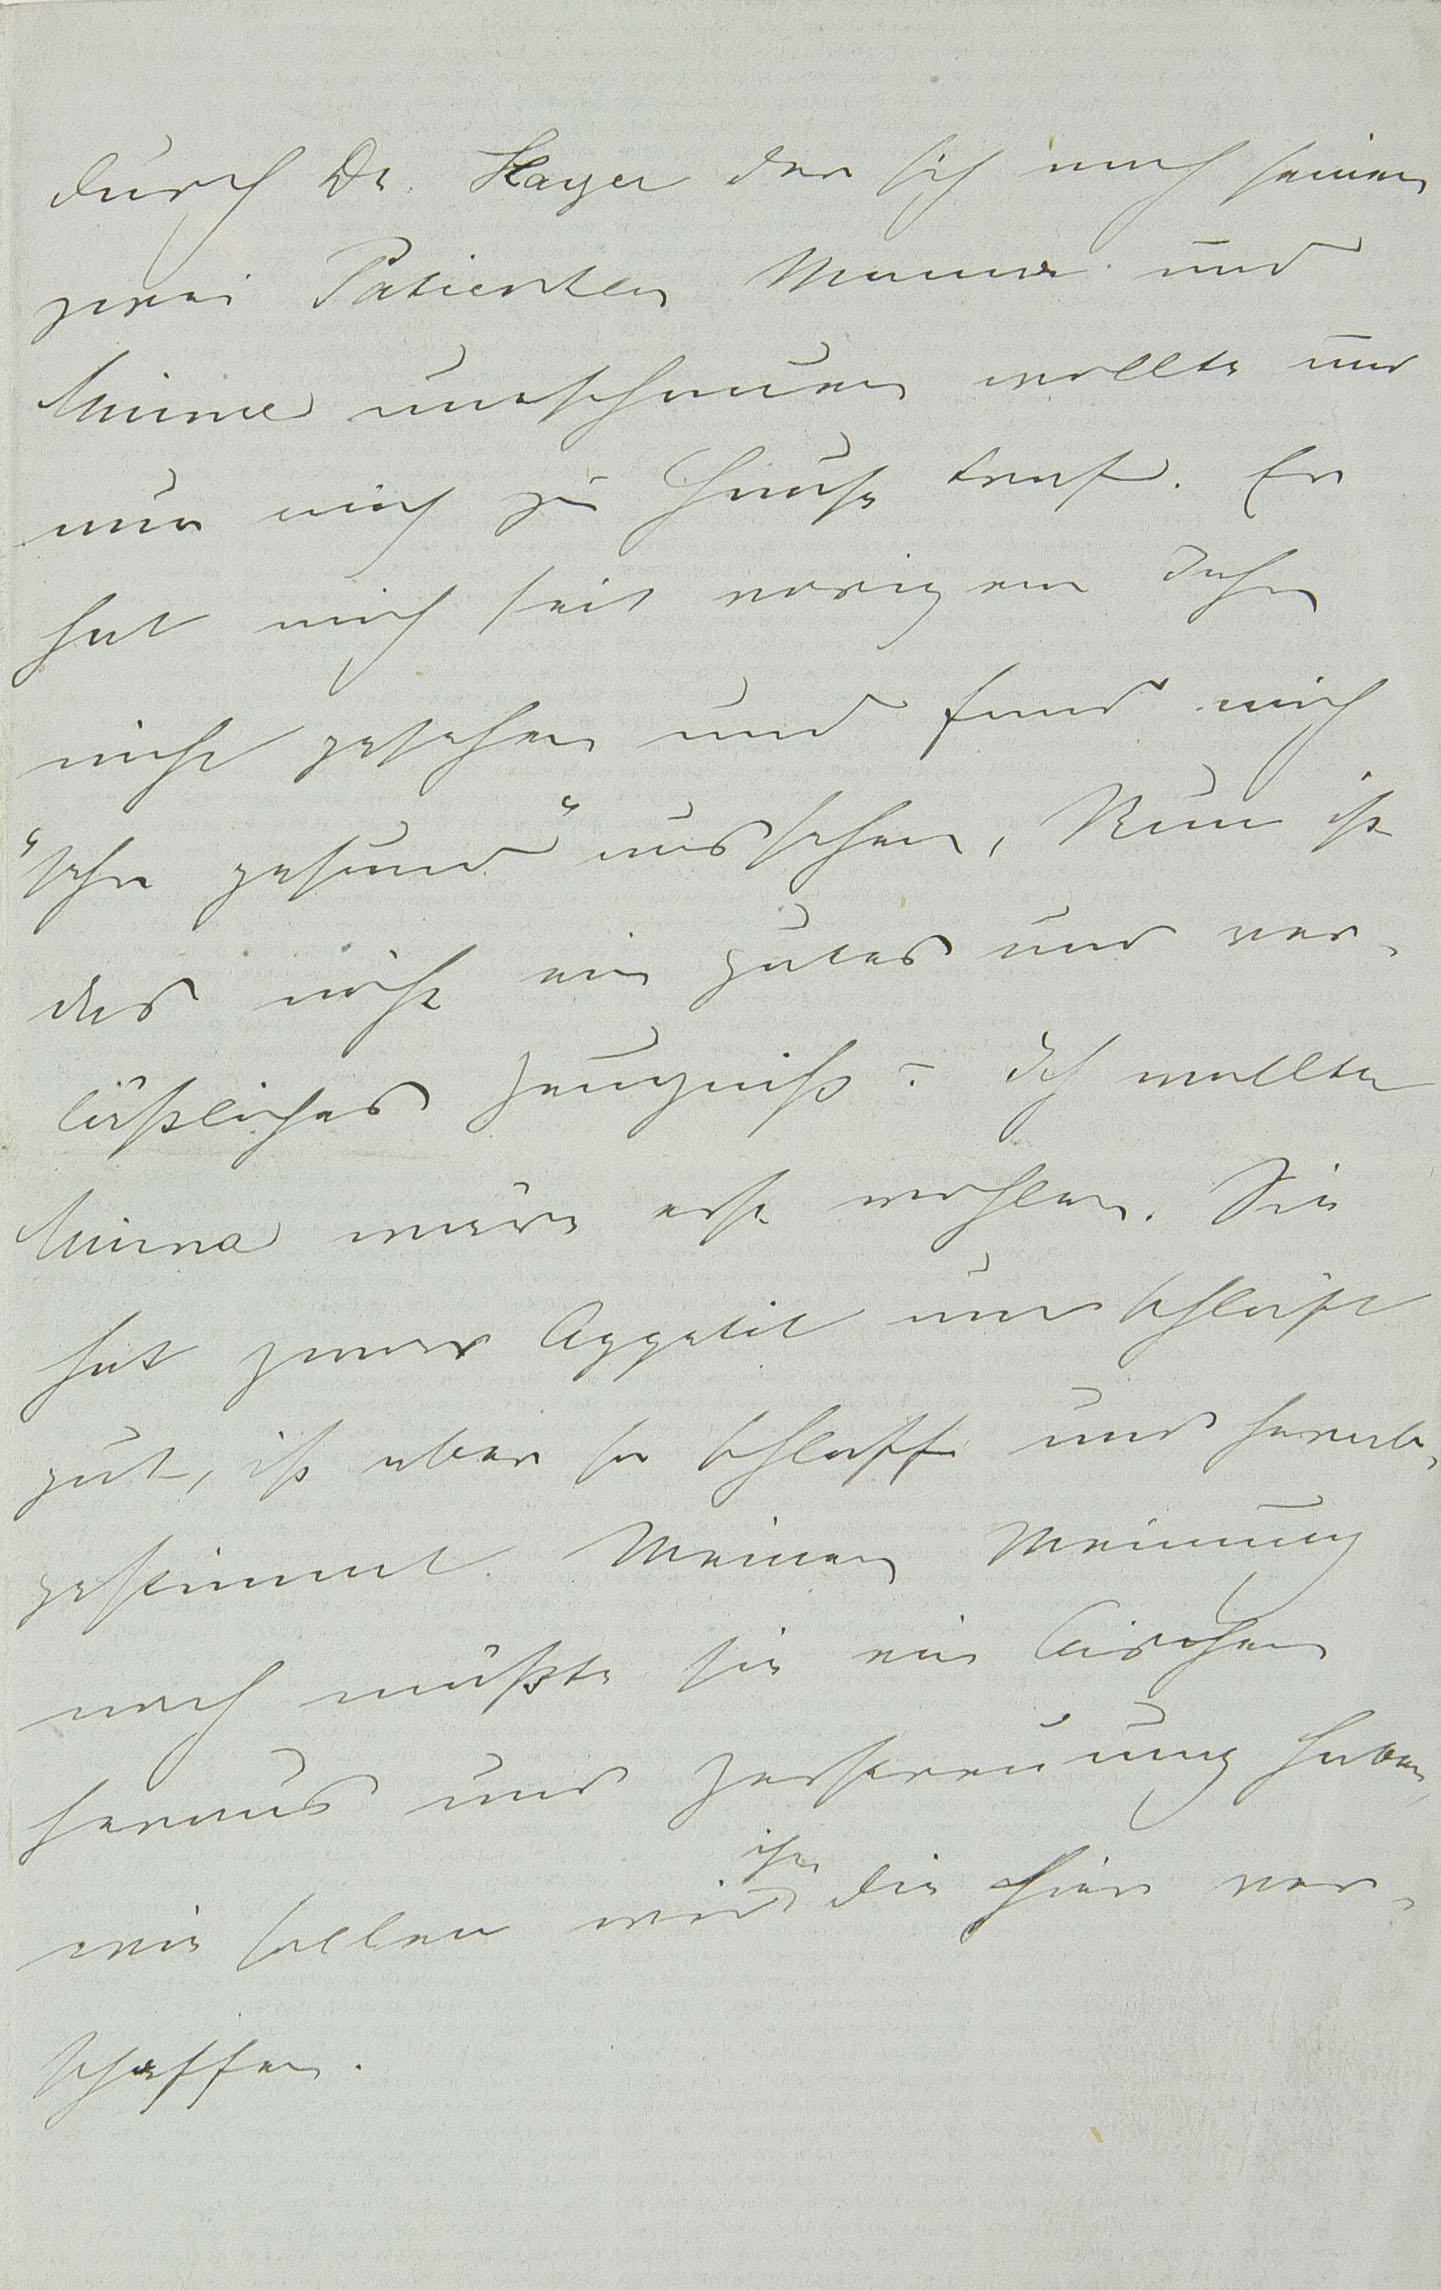 durch Dr. Kayer der sich nach seinen
zwei Patienten Mama und
Minna umschauen wollte und
nur mich zu Hause traf. Er
hat mich seit vorigem Jahr
nicht gesehen und fand mich
"sehr gesund" aussehen, Nun ist
das nicht ein gutes und ver-
läßliches Zeugniß? Ich wollte
Minna wäre erst wohler. Sie
hat zwar Appetit und schläft
gut, ist aber so schlaff und herab-
gestimmt. Meiner Meinung
nach müßte sie ein bischen
heraus und Zerstreuung haben,
wie sollen wir ihr die hier ver-
schaffen.